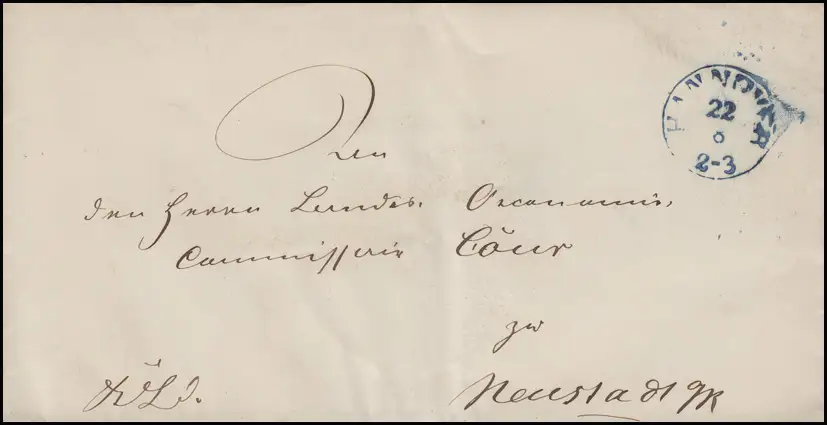 HANNOVER
22
6
2-3
An
den Herrn Landes-Oeconomie-
Commissair Cöur
zu
Neustadt a/R